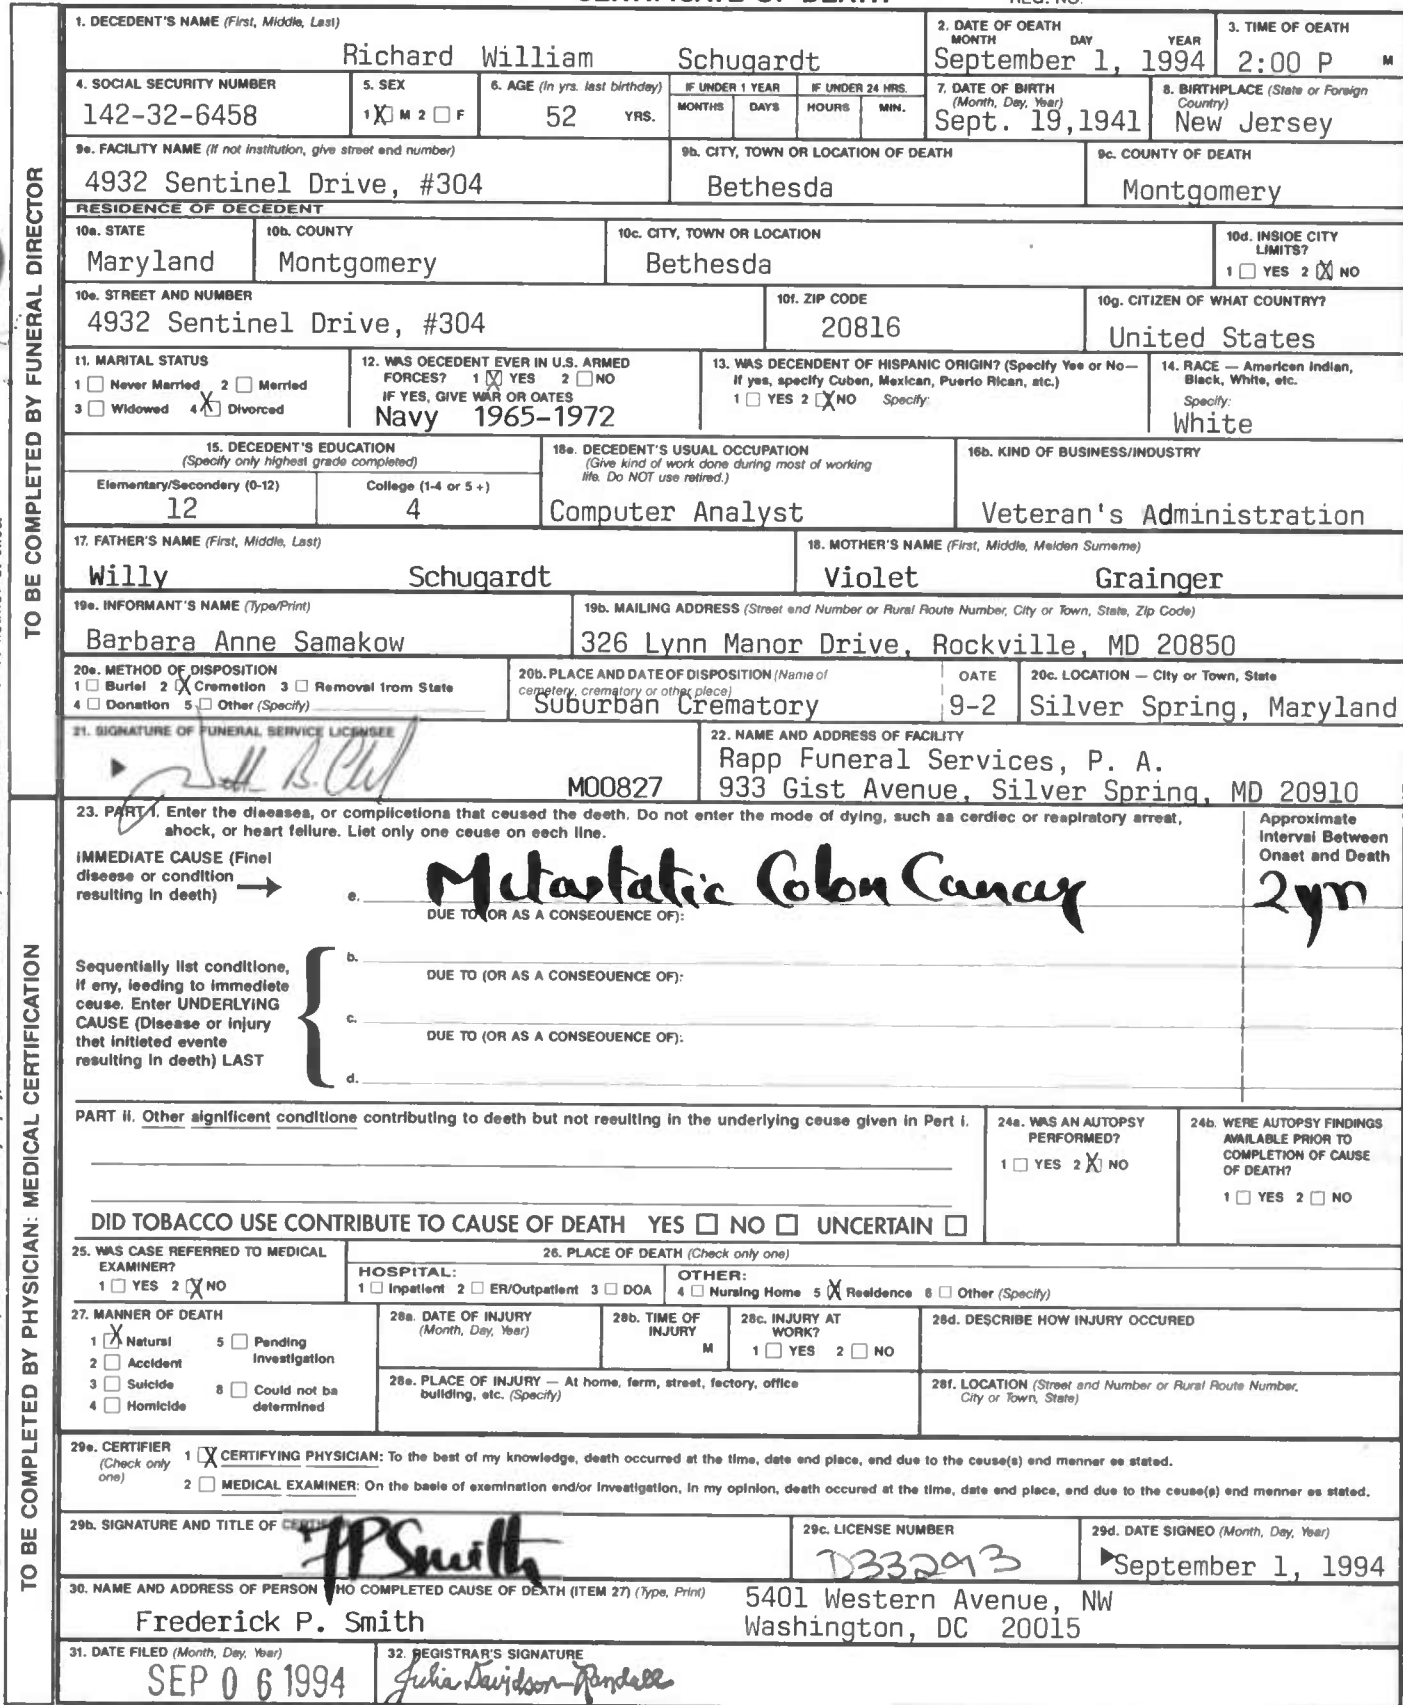 1. DECEDENT'S NAME (First, Middle, Last)
Richard William Schugardt
2. DATE OF DEATH
MONTH DAY YEAR
September 1, 1994
3. TIME OF DEATH
2:00 P M
4. SOCIAL SECURITY NUMBER
142-32-6458
5. SEX
1 X M 2 □ F
6. AGE (In yrs. last birthday)
52 YRS.
IF UNDER 1 YEAR
MONTHS DAYS
IF UNDER 24 HRS.
HOURS MIN.
7. DATE OF BIRTH
(Month, Day, Year)
Sept. 19,1941
8. BIRTHPLACE (State or Foreign
Country)
New Jersey
9a. FACILITY NAME (If not institution, give street and number)
4932 Sentinel Drive, #304
9b. CITY, TOWN OR LOCATION OF DEATH
Bethesda
9c. COUNTY OF DEATH
Montgomery
RESIDENCE OF DECEDENT
10a. STATE
Maryland
10b. COUNTY
Montgomery
10c. CITY, TOWN OR LOCATION
Bethesda
10d. INSIDE CITY
LIMITS?
1 □ YES 2 X NO
10e. STREET AND NUMBER
4932 Sentinel Drive, #304
10f. ZIP CODE
20816
10g. CITIZEN OF WHAT COUNTRY?
United States
11. MARITAL STATUS
1 □ Never Married 2 □ Married
3 □ Widowed 4 X Divorced
12. WAS DECEDENT EVER IN U.S. ARMED
FORCES? 1 X YES 2 □ NO
IF YES, GIVE WAR OR DATES
Navy 1965-1972
13. WAS DECENDENT OF HISPANIC ORIGIN? (Specify Yes or No—
If yes, specify Cuban, Mexican, Puerto Rican, etc.)
1 □ YES 2 X NO Specify:
14. RACE — American Indian,
Black, White, etc.
Specify:
White
15. DECEDENT'S EDUCATION
(Specify only highest grade completed)
Elementary/Secondary (0-12)
12
College (1-4 or 5 +)
4
16a. DECEDENT'S USUAL OCCUPATION
(Give kind of work done during most of working
life. Do NOT use retired.)
Computer Analyst
16b. KIND OF BUSINESS/INDUSTRY
Veteran's Administration
17. FATHER'S NAME (First, Middle, Last)
Willy Schugardt
18. MOTHER'S NAME (First, Middle, Maiden Surname)
Violet Grainger
19a. INFORMANT'S NAME (Type/Print)
Barbara Anne Samakow
19b. MAILING ADDRESS (Street and Number or Rural Route Number, City or Town, State, Zip Code)
326 Lynn Manor Drive, Rockville, MD 20850
20a. METHOD OF DISPOSITION
1 □ Burial 2 X Cremation 3 □ Removal from State
4 □ Donation 5 □ Other (Specify)
20b. PLACE AND DATE OF DISPOSITION (Name of
cemetery, crematory or other place)
Suburban Crematory
DATE
9-2
20c. LOCATION — City or Town, State
Silver Spring, Maryland
21. SIGNATURE OF FUNERAL SERVICE LICENSEE
M00827
22. NAME AND ADDRESS OF FACILITY
Rapp Funeral Services, P. A.
933 Gist Avenue, Silver Spring, MD 20910
TO BE COMPLETED BY FUNERAL DIRECTOR
23. PART I. Enter the diseases, or complications that caused the death. Do not enter the mode of dying, such as cardiac or respiratory arrest,
shock, or heart failure. List only one cause on each line.
Approximate
Interval Between
Onset and Death
IMMEDIATE CAUSE (Final
disease or condition
resulting in death)
a. Metastatic Colon Cancer
2 yrs
DUE TO (OR AS A CONSEQUENCE OF):
Sequentially list conditions,
if any, leading to immediate
cause. Enter UNDERLYING
CAUSE (Disease or injury
that initiated events
resulting in death) LAST
b.
DUE TO (OR AS A CONSEQUENCE OF):
c.
DUE TO (OR AS A CONSEQUENCE OF):
d.
PART II. Other significant conditions contributing to death but not resulting in the underlying cause given in Part I.
24a. WAS AN AUTOPSY
PERFORMED?
1 □ YES 2 X NO
24b. WERE AUTOPSY FINDINGS
AVAILABLE PRIOR TO
COMPLETION OF CAUSE
OF DEATH?
1 □ YES 2 □ NO
DID TOBACCO USE CONTRIBUTE TO CAUSE OF DEATH YES □ NO □ UNCERTAIN □
25. WAS CASE REFERRED TO MEDICAL
EXAMINER?
1 □ YES 2 X NO
26. PLACE OF DEATH (Check only one)
HOSPITAL:
1 □ Inpatient 2 □ ER/Outpatient 3 □ DOA
OTHER:
4 □ Nursing Home 5 X Residence 6 □ Other (Specify)
27. MANNER OF DEATH
1 X Natural
2 □ Accident
3 □ Suicide
4 □ Homicide
5 □ Pending
Investigation
8 □ Could not be
determined
28a. DATE OF INJURY
(Month, Day, Year)
28b. TIME OF
INJURY
M
28c. INJURY AT
WORK?
1 □ YES 2 □ NO
28d. DESCRIBE HOW INJURY OCCURED
28e. PLACE OF INJURY — At home, farm, street, factory, office
building, etc. (Specify)
28f. LOCATION (Street and Number or Rural Route Number,
City or Town, State)
29a. CERTIFIER
(Check only
one)
1 X CERTIFYING PHYSICIAN: To the best of my knowledge, death occurred at the time, date and place, and due to the cause(s) and manner as stated.
2 □ MEDICAL EXAMINER: On the basis of examination and/or investigation, in my opinion, death occured at the time, date and place, and due to the cause(s) and manner as stated.
29b. SIGNATURE AND TITLE OF CERTIFIER
FP Smith
29c. LICENSE NUMBER
D33293
29d. DATE SIGNED (Month, Day, Year)
September 1, 1994
30. NAME AND ADDRESS OF PERSON WHO COMPLETED CAUSE OF DEATH (ITEM 27) (Type, Print)
Frederick P. Smith
5401 Western Avenue, NW
Washington, DC 20015
31. DATE FILED (Month, Day, Year)
SEP 06 1994
32. REGISTRAR'S SIGNATURE
Julia Davidson-Randall
TO BE COMPLETED BY PHYSICIAN: MEDICAL CERTIFICATION